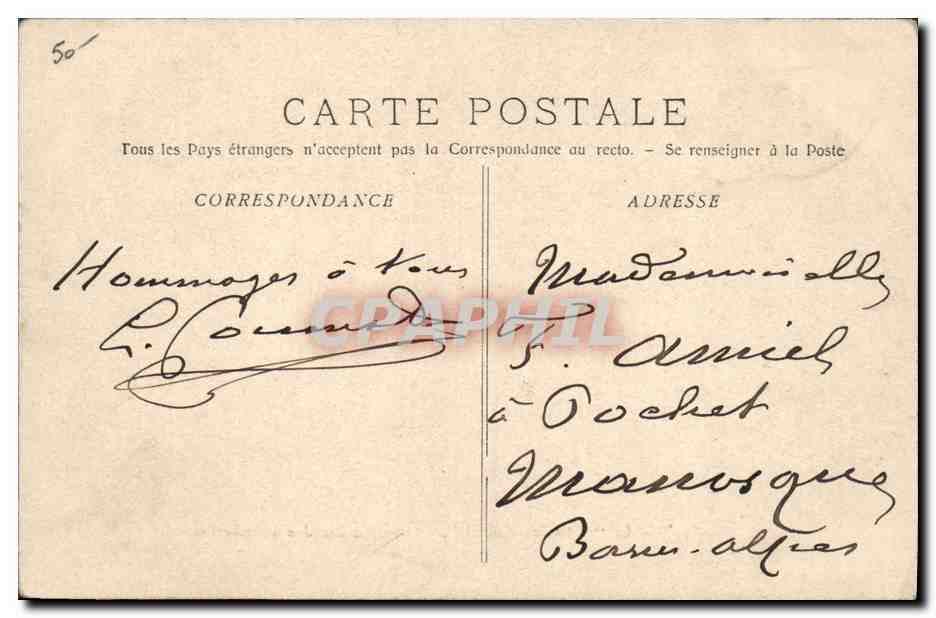 50
CARTE POSTALE
Tous les Pays étrangers n'acceptent pas la Correspondance au recto. - Se renseigner à la Poste
CORRESPONDANCE
ADRESSE
Hommages à Vous
Mademoiselle
F. Amiel
à Pochet
Manosque
Basses-Alpes
CPAPHIL